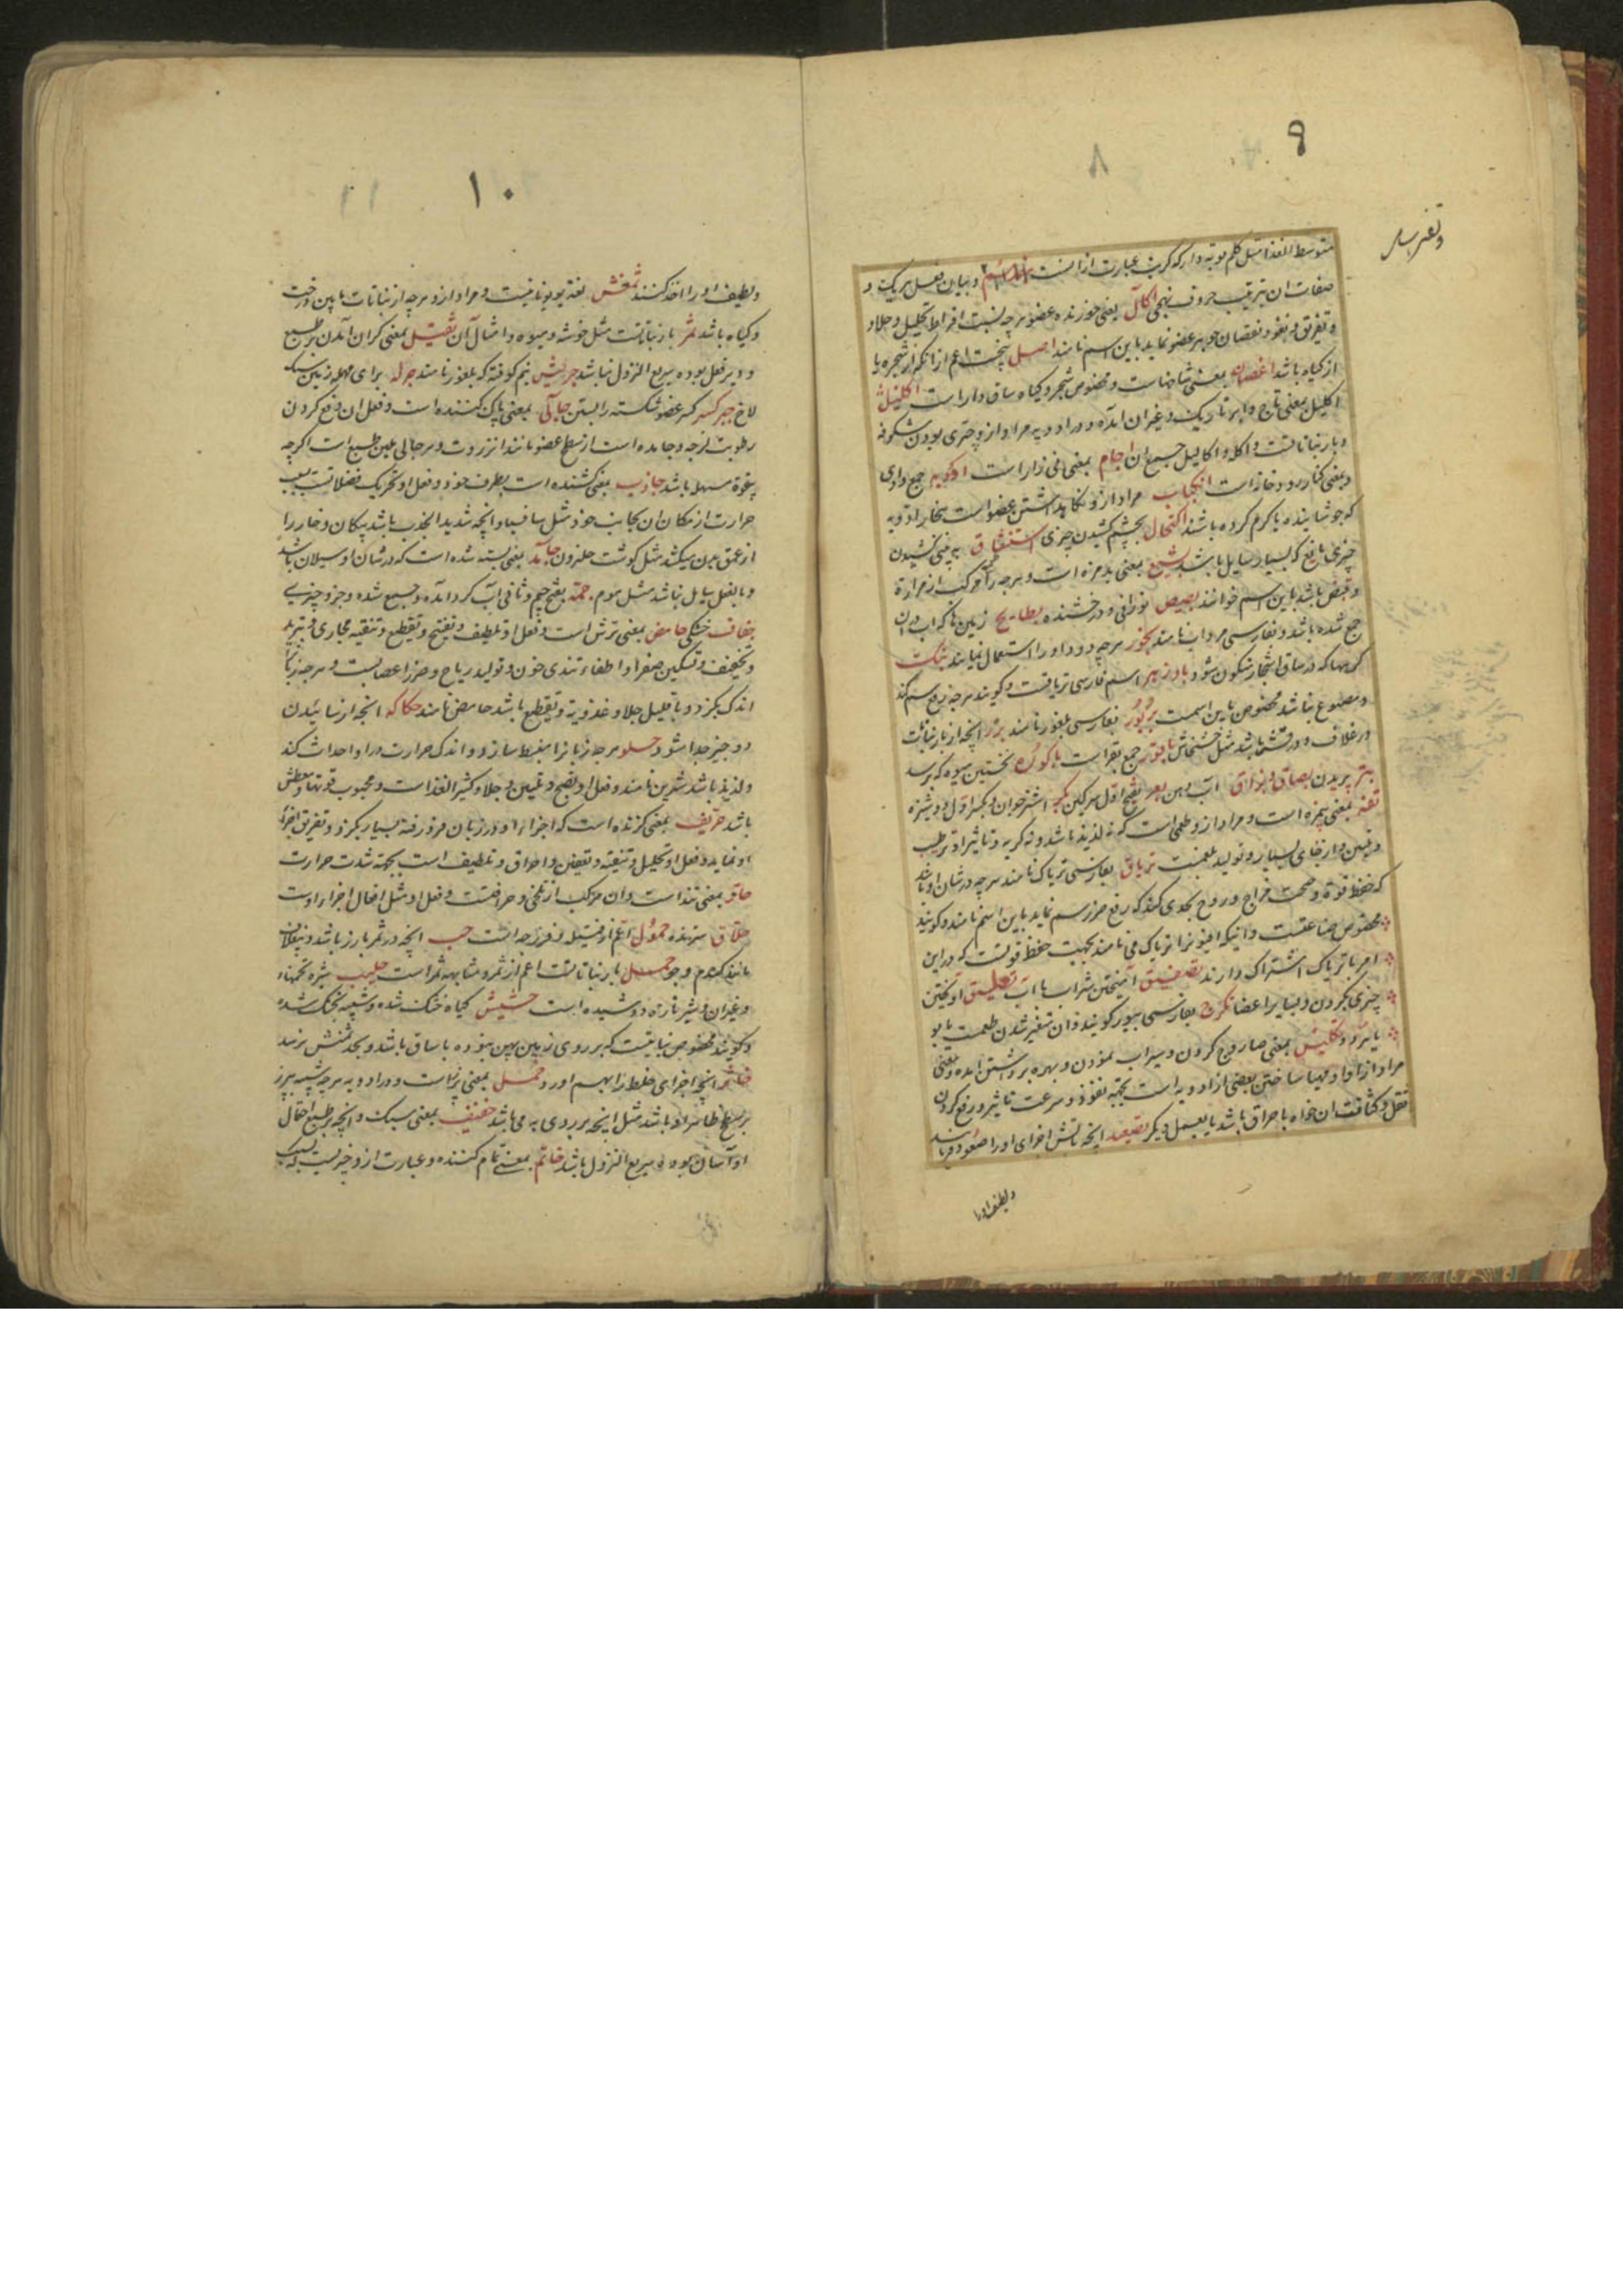 ۹
۸
متوسط الغذا مثل کلم و به دارکه کرنب عبارت از انست و بیان فعل هریک و
صفات ان بترتیب حروف تهجی اکال یعنی خورنده عضو هرچه بسبب افراط تحلیل و جلا و
و تفریق و نفوذ نقصان جوهر عضو نماید باین اسم نامند اصل بیخست اعم از انکه از شجره یا
از کیاه باشد اغصان بمعنی شاخهاست و مخصوص شجر و کیاه ساق دار است اکلیل
اکلیل بمعنی تاج و ابر تاریک و غیر ان امده و در ادویه مراد از و چتری بودن شکوفه
و بار نباتاتست و اکله و اکالیل جمع ان اجام بمعنی نی زار است اودیه جمع وادی
و بمعنی کنار رودخانه است انکباب مراد از و نکاهداشتن عضو است ببخار ادویه
که جوشانیده یا کرم کرده باشند اکتحال بچشم کشیدن چیزی استنشاق به بینی کشیدن
چیزی مایع که بسیار سایل باشد بشع بمعنی بدمزه است و هرچه مرکب از مرارة
و قبض باشد باین اسم خوانند بصیص نورانی و درخشنده بطایح زمین ها که اب در ان
جمع شده باشد و بفارسی مرداب نامند بخور هرچه دود او را استعمال نمایند بنک
کرمها که در ساق اشجار متکون شود بادزهر اسم فارسی تریاقست و کویند هرچه رفع سم کند
و مصنوع نباشد مخصوص باین اسمست بربور بفارسی بلغور نامند بزر انچه از بار نباتات
در غلاف و در قشر باشد مثل خشخاش باقور جمع بقر است باکوره نخستین میوه که برسد
بتر بریدن بصاق و بزاق آب دهن بعر بفتح اول سرکین بکر اشتر جوان و بکسر اول دوشیزه
تفه بمعنی بیمزه است و مراد از و طعمی است که نه لذیذ باشد و نه کریه و تاثیر او ترطیب
و تلیین و ارخای بسیار و تولید بلغمست تریاق بفارسی تریاک نامند هرچه در شان او باشد
که حفظ قوة و صحت مزاج و روح بحدی کند که رفع ضرر سم نماید باین اسم نامند و کویند
مخصوص صناعتست و انیکه افیونرا تریاک می نامند بجهت حفظ قوتست که در این
امر با تریاک اشتراک دارند تصفیق آمیختن شراب با آب تعلیق اویختن
چیزی بکردن و بسایر اعضا تکرج بفارسی بیور کویند و ان متغیر شدن طعمست با بو
یا بنرد و تکلیس بمعنی صاروج کردن و سیراب نمودن و بهره برداشتن امده و بمعنی
مراد از او ادمیها ساختن بعضی از ادویه است بجهة نفوذ و سرعت تاثیر و رفع کردن
ثقل و کثافت ان خواه باحراق باشد یا بعمل دیکر تصعید انچه باتش اجزای او را صعود فرمایند
و لطیف او را
۱۰
۱۱
و لطیف او را اخذ کنند ثمنش لغة یونانیست و مراد از و هرچه از نباتات مابین درخت
و کیاه باشد ثمر بار نباتاتست مثل خوشه و میوه و امثال آن ثقیل بمعنی کران آمدن بر طبع
و دیر فعل بوده سریع النزول نباشد جریش نیم کوفته که بلغور نامند جرله برای مهمله زمین سنک
لاخ جبر کسر عضو شکسته را بستن جالی بمعنی پاک کننده است و فعل ان رفع کردن
رطوبت لزجه و جامده است از سطح عضو مانند انزروت و هر جالی ملین طبع است اکرچه
بقوة مسهله باشد جاذب بمعنی کشنده است بطرف خود و فعل او تحریک فضلاتست بسبب
حرارت از مکان ان بجانب خود مثل سافسیا و انچه شدید الجذب باشد پیکان و خار را
از عمق بیرون میکشد مثل کوشت حلزون جامد بمعنی بسته شده است که در شان او سیلان باشد
و بالفعل سایل نباشد مثل موم جمد بفتح جیم و ثانی آب کرد امده و جمع شده و جزو چیزی
جفاف خشکی حامض بمعنی ترش است و فعل او تلطیف و تفتیح و تقطیع و تنقیه مجاری و تبرید
و تجفیف و تسکین صفرا و اطفاء تندی خون و تولید ریاح و ضرر اعصابست و هرچه زبانرا
اندک بکزد و با قلیل جلا و عذوبت و تقطیع باشد حامض نامند حکاکه انچه از سائیدن
دو چیز جدا شود حلو هرچه زبانرا منبسط سازد و اندک حرارت در او احداث کند
و لذیذ باشد شیرین نامند و فعل او نضج و تلیین و جلا و کثیر الغذاست و محبوب قوتها و معطش
باشد حریف بمعنی کزنده است که اجزاء او در زبان فرو رفته بسیار بکزد و تفریق اجزاء
او نماید و فعل او تحلیل و تنقیه و تعفین و احراق و تلطیف است بجهة شدت حرارت
حاد بمعنی تند است و ان مرکب از تلخی و حرافتست و فعل او مثل افعال اجزاء اوست
حلاق سترنده حمول اعم از فتیله و فرزجه است حب انچه در ثمر بارز باشد و بیغلاف
مانند کندم و جو حمل بار نباتاتست اعم از ثمر و مشابهه ثمر است حلیب شیره تخمهاء
و غیر ان و شیر تازه دوشیده است حشیش کیاه خشک شده و شبیه بخشک شده
و کویند مخصوص نباتیست که بر روی زمین پهن نبوده با ساق باشد و بحد ثمنش نرسد
خاثر انچه اجزای غلیظ را بهم اورد خمل بمعنی پرزیست و در ادویه هرچه شبیه بپرز
بر سطح ظاهر او باشد مثل انچه بر روی به می باشد خفیف بمعنی سبک و انچه بر طبع احتمال
او آسان بوده سریع النزول باشد خاتم بمعنی تمام کننده و عبارت از و چیزیست که بسبب